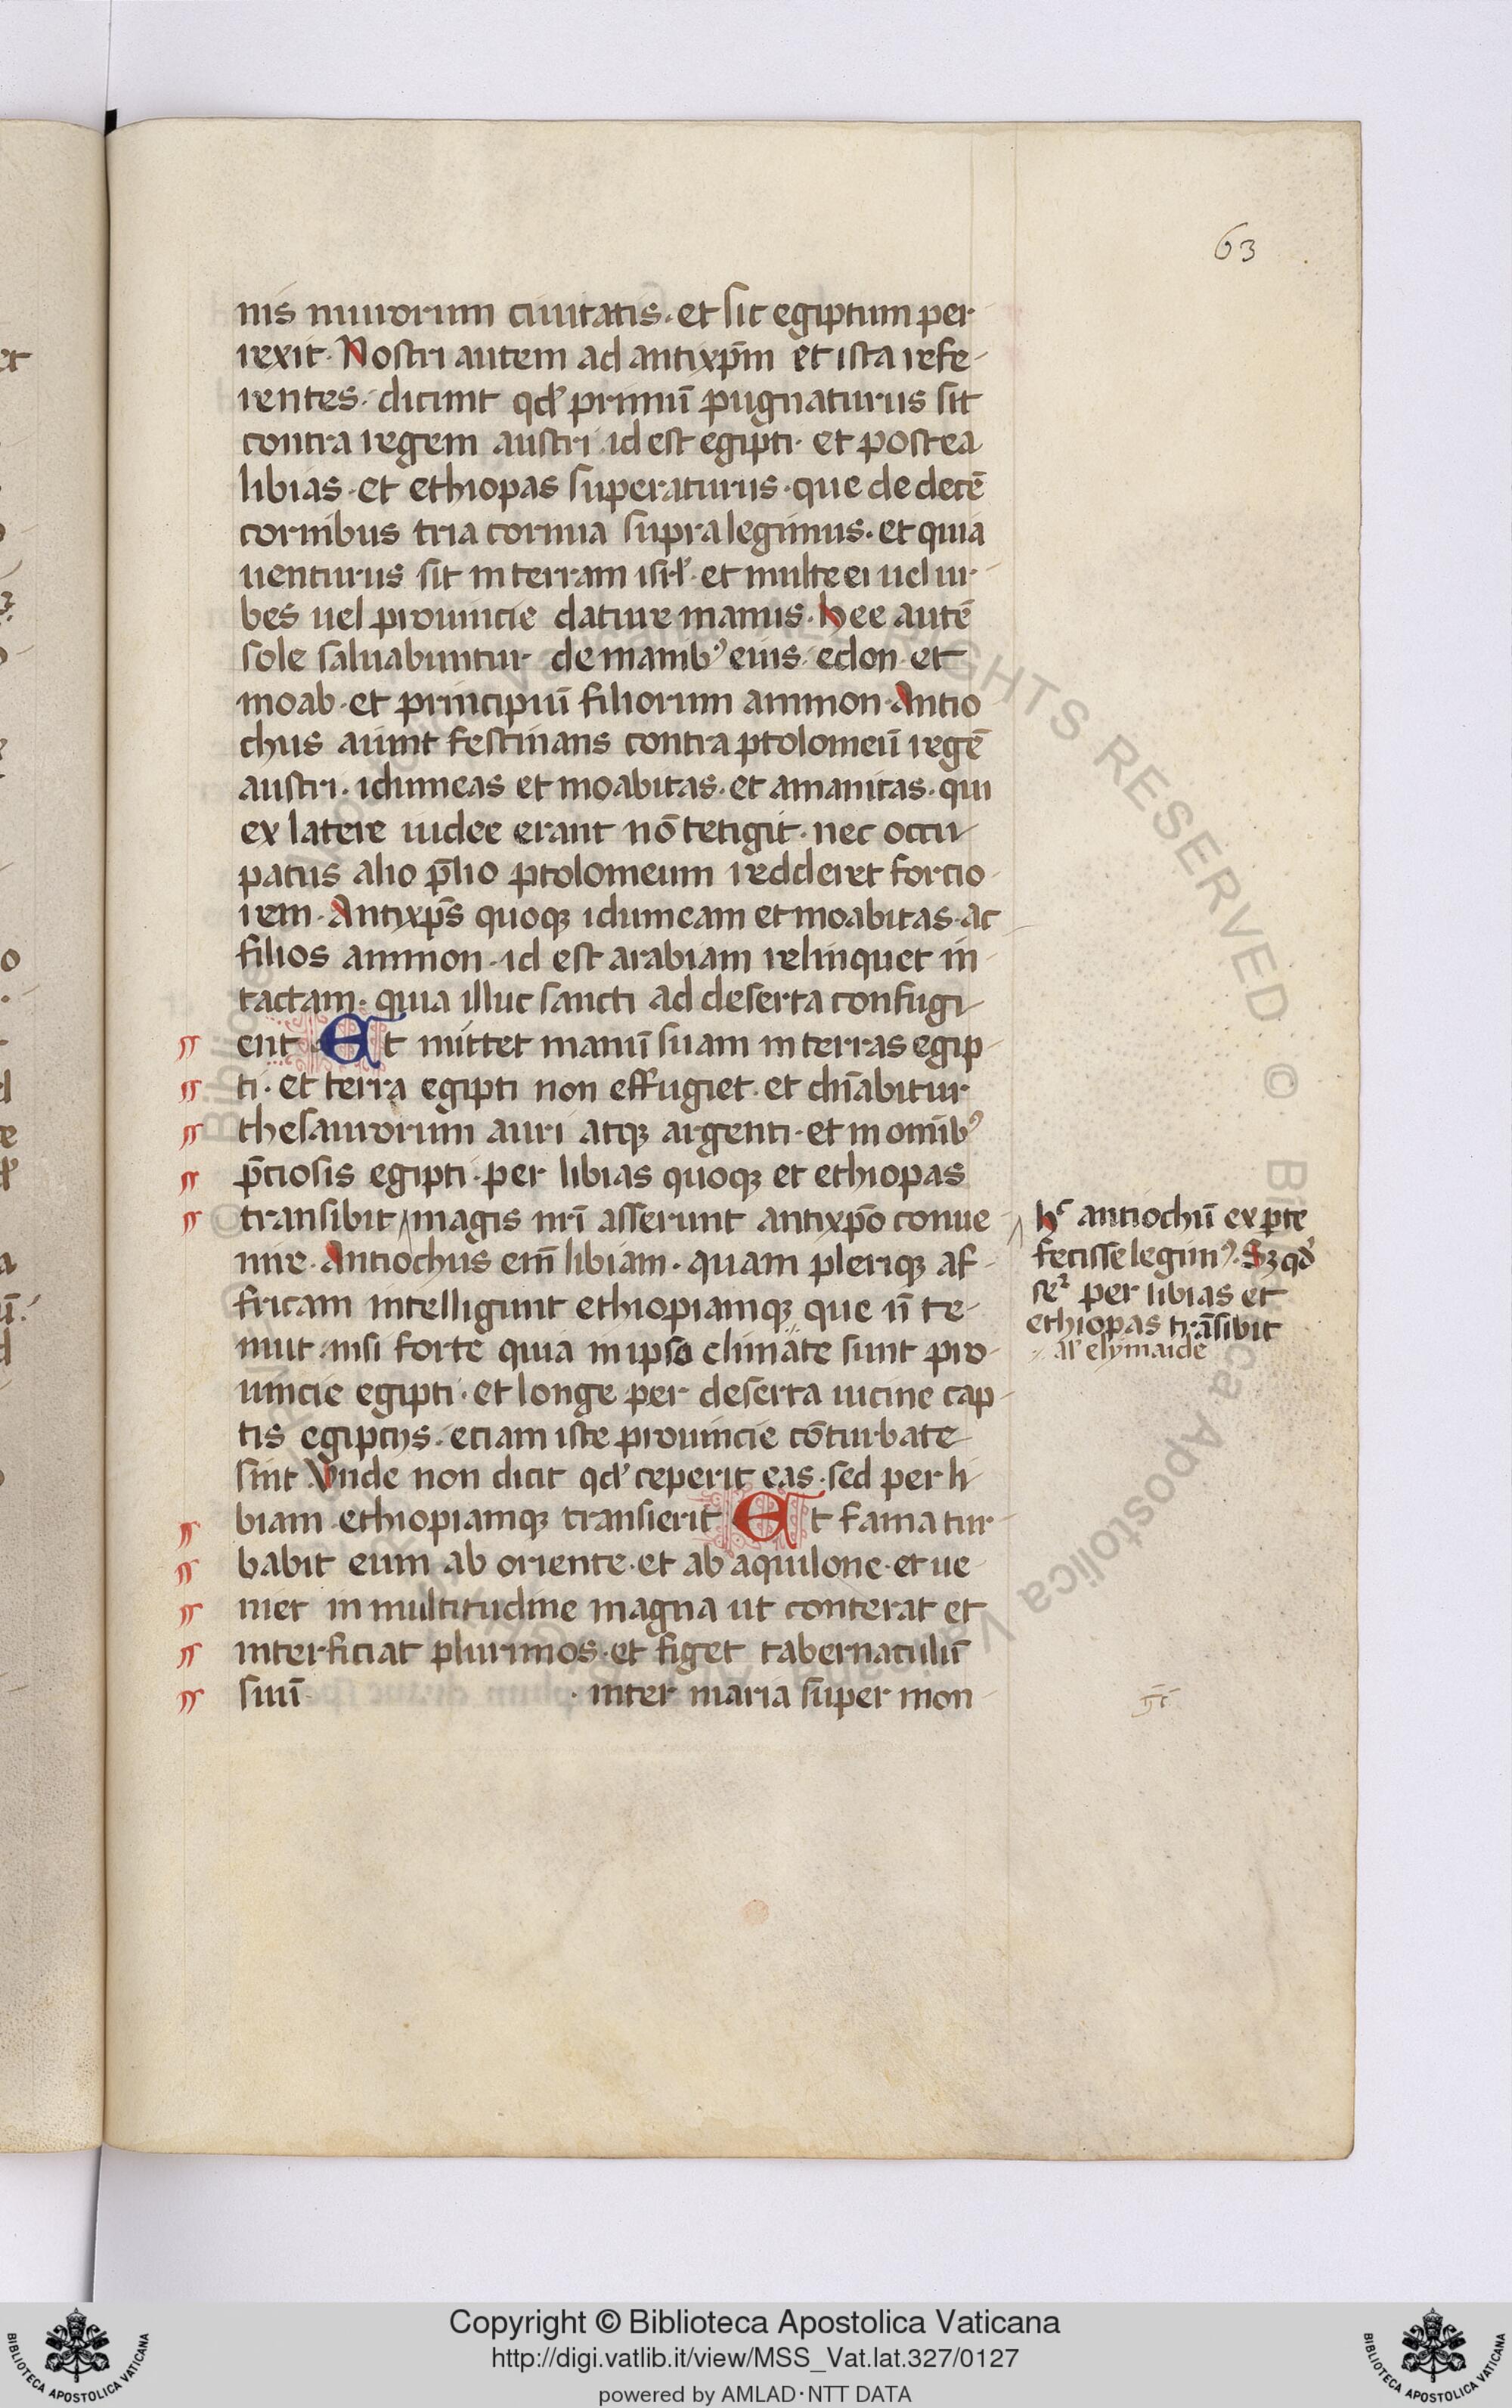 63
nis murorum ciuitatis. et sic egiptum per
rexit. Nostri autem ad antixp̄m et ista refe
rentes. dicunt qd' primū pugnaturus sit
contra regem austri id est egipti. et postea
libias. et ethiopas superaturus. que de decē
cornibus tria cornua supra legimus. et quia
uenturus sit in terram isrl'. et multe ei uel ur
bes uel prouincie dature manus. hee autē
sole saluabuntur de manib' eius. edon et
moab. et principiū filiorum ammon. Antio
chus aiunt festinans contra ptolomeū regē
austri. idumeas et moabitas. et amanitas. qui
ex latere iudee erant nō tetigit. nec occu
patus alio p̄lio ptolomeum redderet forcio
rem. Antixp̄s quoqꝫ idumeam et moabitas. ac
filios ammon. id est arabiam relinquet in
tactam. quia illuc sancti ad deserta confugi
ent. Et mittet manū suam in terras egip
ti. et terra egipti non effugiet. et dn̄abitur
thesaurorum auri atqꝫ argenti. et in omīb'
p̄ciosis egipti. per libias quoqꝫ et ethiopas
transibit magis nr̄i asserunt antixp̄o conue
nire. Antiochus em̄ libiam. quam plerique af
fricam intelligunt ethiopiamqꝫ que n̄ te
nuit. nisi forte quia in ipso climate sunt pro
uincie egipti. et longe per deserta uicine cap
tis egiptijs. eciam iste prouincie cōturbate
sint Vnde non dicit qd' ceperit eas. sed per li
biam ethiopiamqꝫ transierit Et fama tur
babit eum ab oriente. et ab aquilone. et ue
niet in multitudine magna ut conterat et
interficiat plurimos. et figet tabernaculū
suū . inter maria super mon
hc antiochū ex ꝑte
fecisse legim'. Sꝫ qd'
per libias et
ethiopas trāsibit
al' elymaide
Copyright © Biblioteca Apostolica Vaticana
http://digi.vatlib.it/view/MSS_Vat.lat.327/0127
powered by AMLAD·NTT DATA
BIBLIOTECA APOSTOLICA VATICANA
BIBLIOTECA APOSTOLICA VATICANA